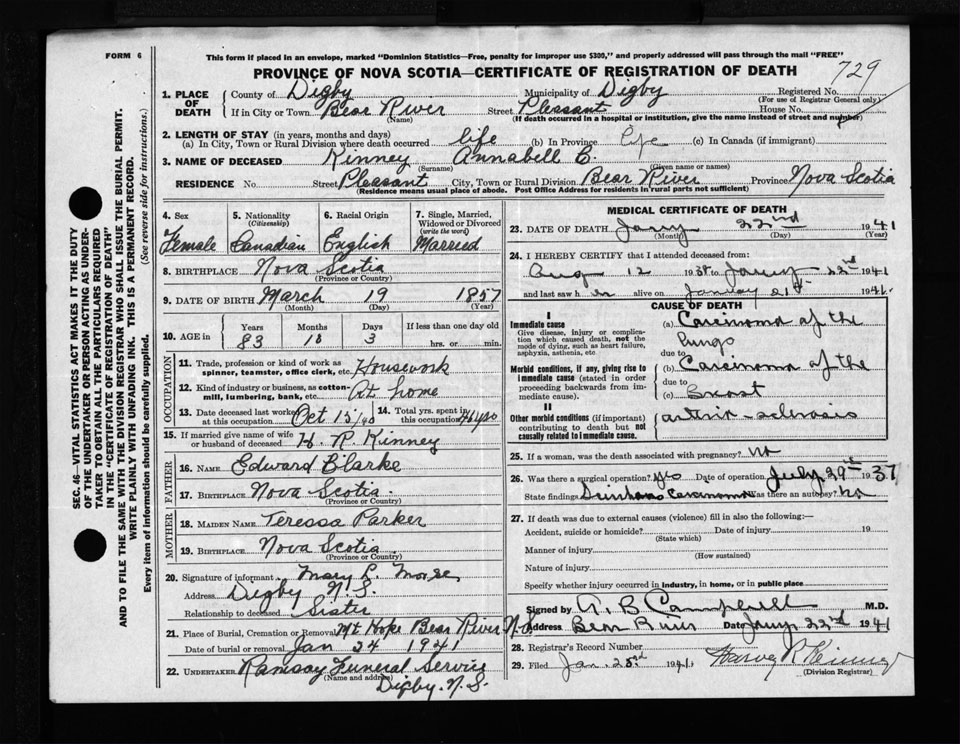 FORM 6
This form if placed in an envelope, marked "Dominion Statistics—Free, penalty for improper use $300," and properly addressed will pass through the mail "FREE"
PROVINCE OF NOVA SCOTIA—CERTIFICATE OF REGISTRATION OF DEATH
729
1. PLACE OF DEATH County of Digby Municipality of Digby Registered No.
(For use of Registrar General only)
If in City or Town Bear River Street Pleasant House No.
(Name) (If death occurred in a hospital or institution, give the name instead of street and number)
2. LENGTH OF STAY (in years, months and days)
(a) In City, Town or Rural Division where death occurred life (b) In Province life (c) In Canada (if immigrant)
3. NAME OF DECEASED Kinney Annabell E.
(Surname) (Given name or names)
RESIDENCE No. Street Pleasant City, Town or Rural Division Bear River Province Nova Scotia
(Residence means usual place of abode. Post Office Address for residents in rural parts not sufficient)
4. Sex Female
5. Nationality (Citizenship) Canadian
6. Racial Origin English
7. Single, Married, Widowed or Divorced (write the word) Married
8. BIRTHPLACE Nova Scotia
(Province or Country)
9. DATE OF BIRTH March 19 1857
(Month) (Day) (Year)
10. AGE in Years Months Days If less than one day old
83 10 3 hrs. or min.
OCCUPATION
11. Trade, profession or kind of work as spinner, teamster, office clerk, etc. Housework
12. Kind of industry or business, as cotton-mill, lumbering, bank, etc. At home
13. Date deceased last worked at this occupation Oct 15/40
14. Total yrs. spent in this occupation
15. If married give name of wife or husband of deceased H. R. Kinney
FATHER
16. NAME Edward Blarke
17. BIRTHPLACE Nova Scotia
(Province or Country)
MOTHER
18. MAIDEN NAME Teressa Parker
19. BIRTHPLACE Nova Scotia
(Province or Country)
20. Signature of informant Mary L. Morse
Address Digby N.S.
Relationship to deceased Sister
21. Place of Burial, Cremation or Removal Mt Hope Bear River N.S.
Date of burial or removal Jan 24 1941
22. UNDERTAKER Ramsay Funeral Service
(Name and address)
Digby. N.S.
MEDICAL CERTIFICATE OF DEATH
23. DATE OF DEATH Jany 22nd 1941
(Month) (Day) (Year)
24. I HEREBY CERTIFY that I attended deceased from:
Aug 12 1938 to Jany 22nd 1941
and last saw her alive on January 21st 1941.
CAUSE OF DEATH
I
Immediate cause
Give disease, injury or complication which caused death, not the mode of dying, such as heart failure, asphyxia, asthenia, etc
(a) Carcinoma of the
Lungs
due to
Morbid conditions, if any, giving rise to immediate cause (stated in order proceeding backwards from immediate cause)
(b) Carcinoma of the
due to
(c) Breast
II
Other morbid conditions (if important) contributing to death but not causally related to immediate cause.
arterio-sclerosis
25. If a woman, was the death associated with pregnancy? no
26. Was there a surgical operation? yes Date of operation July 29th 1937
State findings Carcinoma Was there an autopsy? no
27. If death was due to external causes (violence) fill in also the following:—
Accident, suicide or homicide? Date of injury 19
(State which)
Manner of injury
(How sustained)
Nature of injury
Specify whether injury occurred in industry, in home, or in public place
Signed by A. B Campbell M.D.
Address Bear River Date Jany 22nd 1941
28. Registrar's Record Number
29. Filed Jan. 23rd 1941 Harvey R Kinney
(Division Registrar)
SEC. 46—VITAL STATISTICS ACT MAKES IT THE DUTY
OF THE UNDERTAKER OR PERSON ACTING AS UNDER-
TAKER TO OBTAIN ALL THE PARTICULARS REQUIRED
IN THE "CERTIFICATE OF REGISTRATION OF DEATH"
AND TO FILE THE SAME WITH THE DIVISION REGISTRAR WHO SHALL ISSUE THE BURIAL PERMIT.
WRITE PLAINLY WITH UNFADING INK. THIS IS A PERMANENT RECORD.
Every item of information should be carefully supplied. (See reverse side for instructions.)